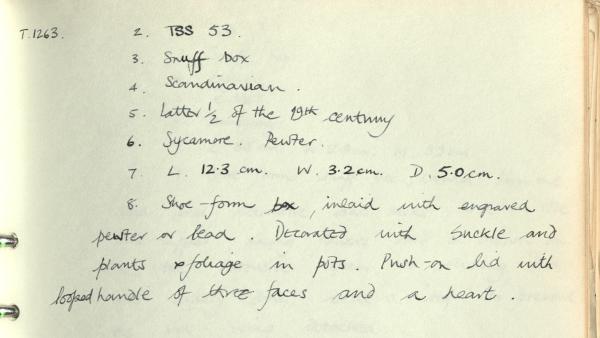 T.1263. 2. TSS 53.
3. Snuff box
4. Scandinavian.
5. Latter 1/2 of the 19th century
6. Sycamore. Pewter.
7. L. 12.3 cm. W. 3.2cm. D. 5.0cm.
8. Shoe-form box, inlaid with engraved
pewter or lead. Decorated with Suckle and
plants & foliage in pots. Push-on lid with
looped handle of three faces and a heart.